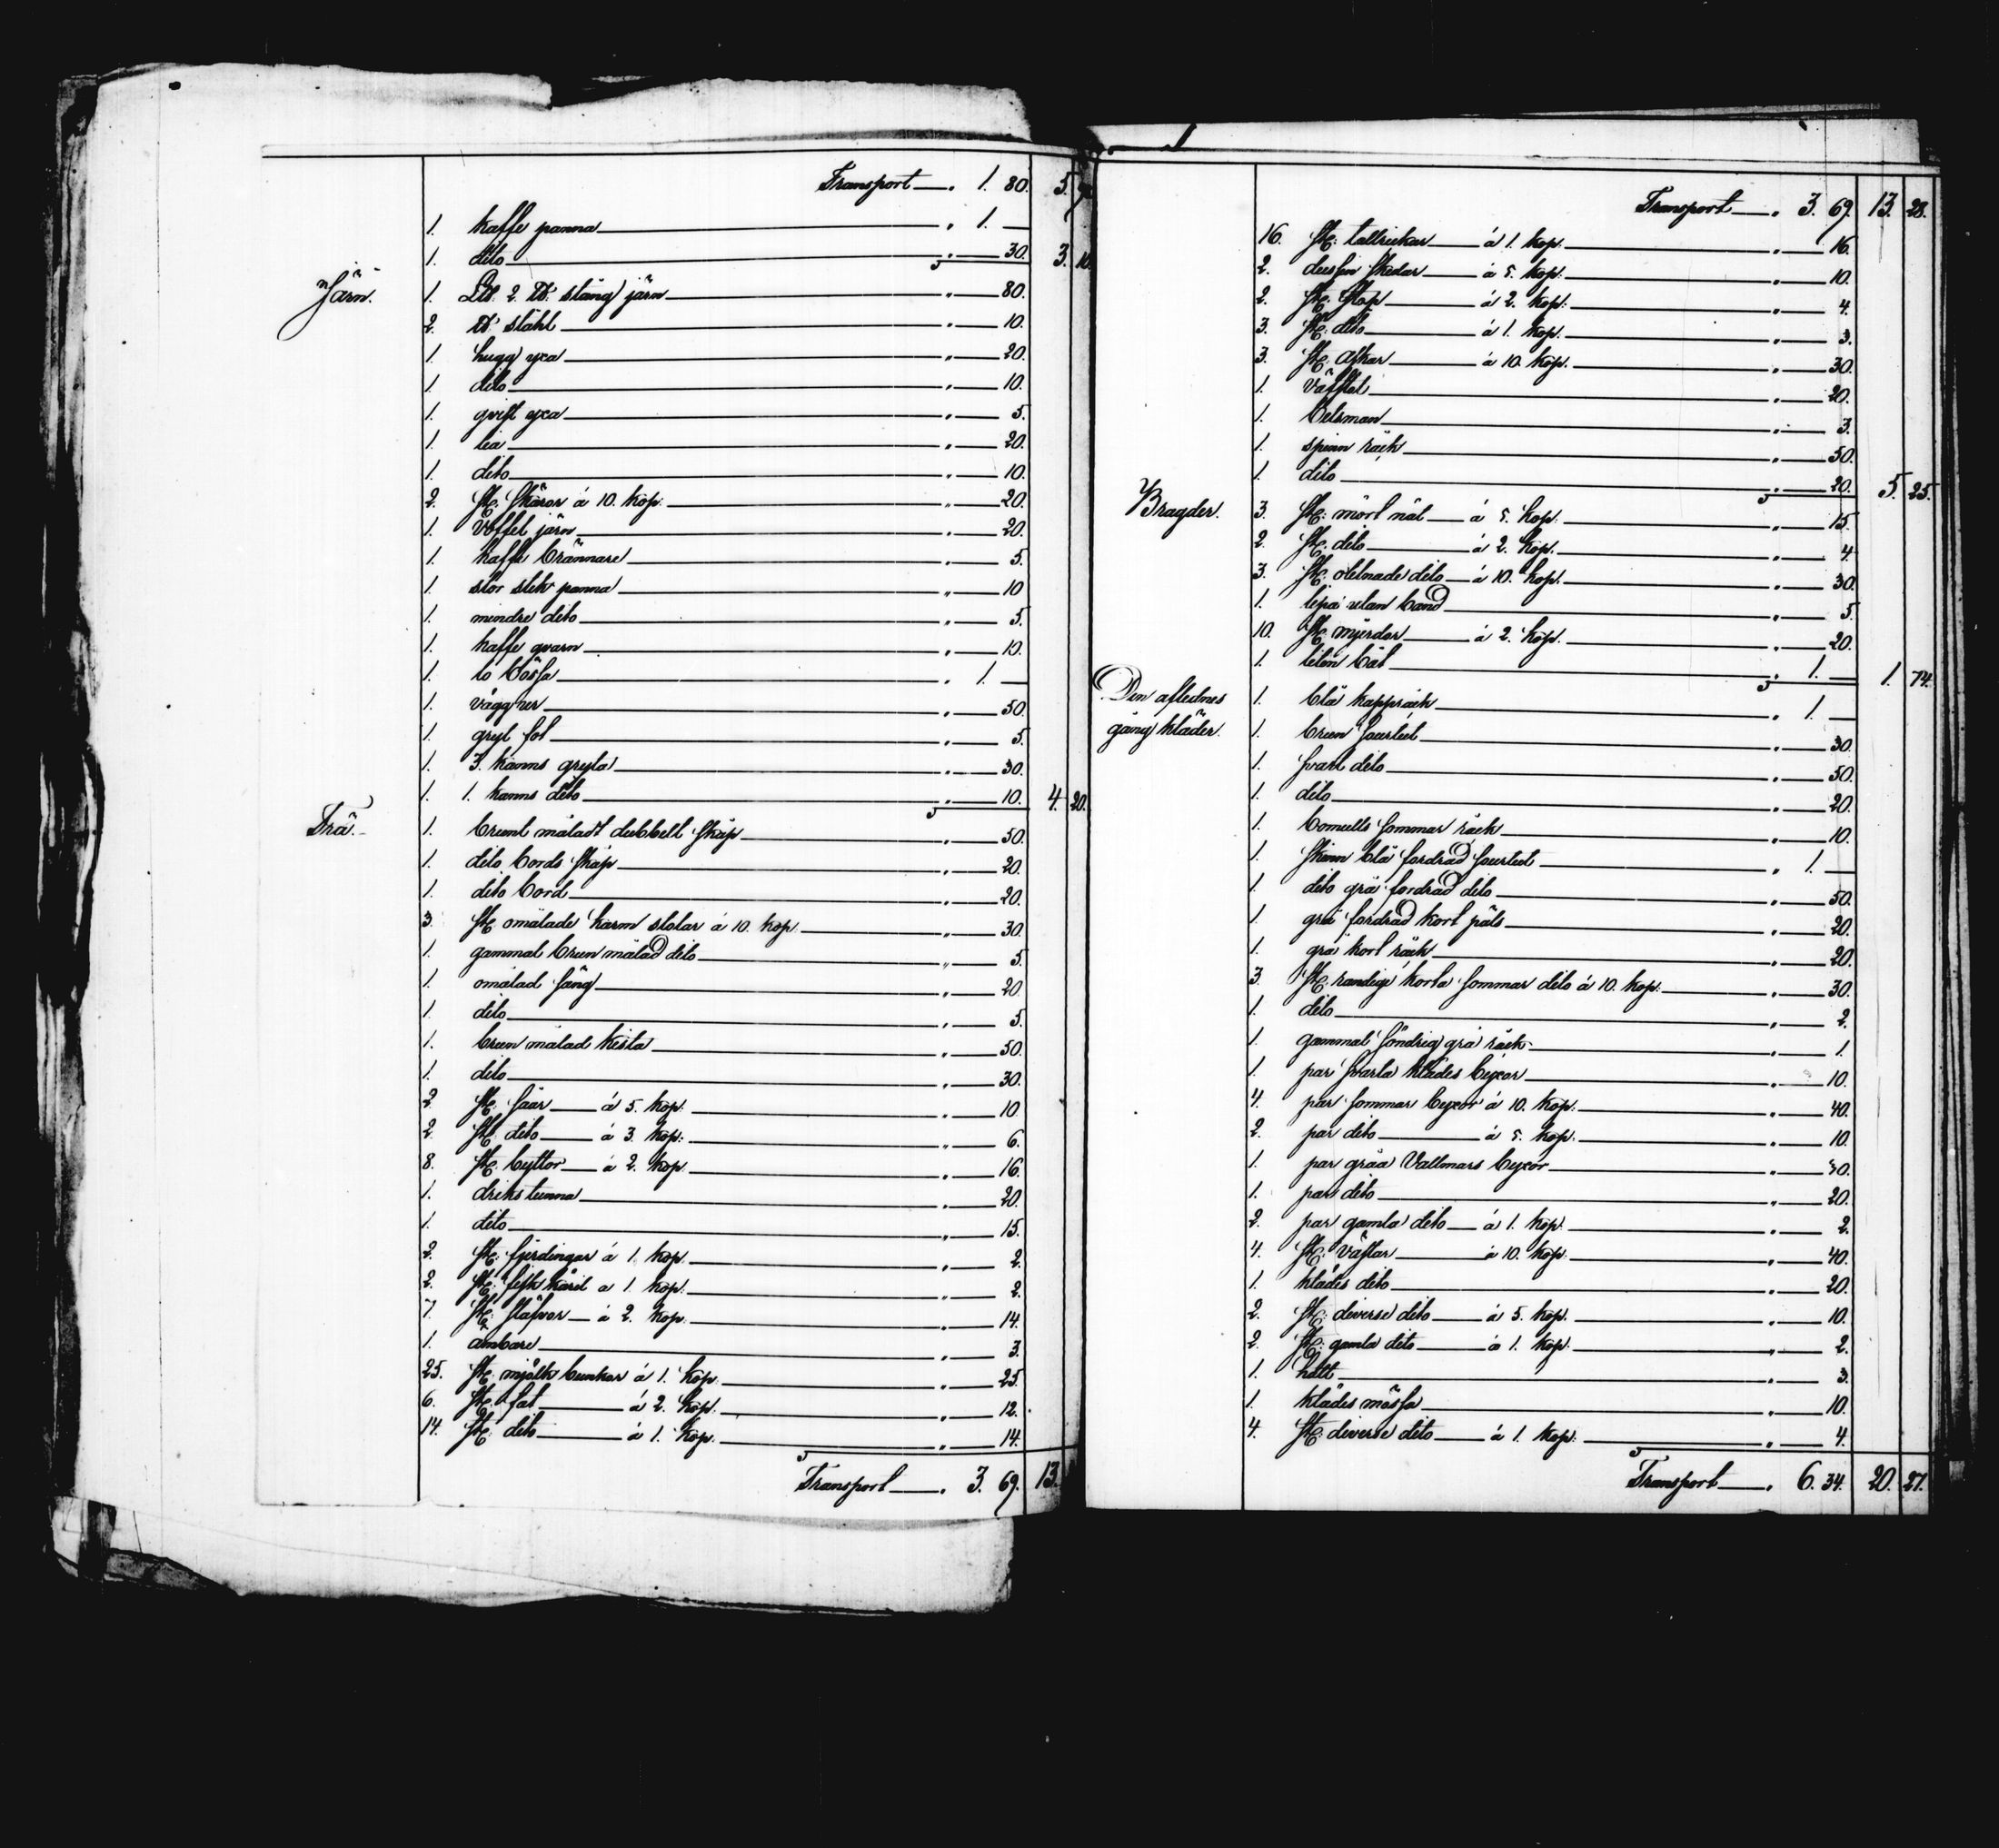 Transport — „ 1. 80. 5.
1. kaffe panna — „ 1. —
1. dito — „ — 30. 3. 10.
Järn. 1. L℔. 2. ℔. stång järn — „ — 80.
2. ℔. stähl — „ — 10.
1. hugg yxa — „ — 20.
1. dito — „ — 10.
1. qvist yxa — „ — 5.
1. lia — „ — 20.
1. dito — „ — 10.
2. st. skäror á 10. kop. — „ — 20.
1. Voffel järn — „ — 20.
1. kaffe brännare — „ — 5.
1. stor stek panna — „ — 10
1. mindre dito — „ — 5.
1. kaffe qvarn — „ — 10.
1. lo bössa — „ 1. —
1. väggner — „ — 50.
1. gryt fot — „ — 5.
1. 3. kanns gryta — „ — 30.
1. 1. kanns dito — „ — 10. 4. 20.
Trä. 1. brunt måladt dubbelt skåp — „ — 50.
1. dito bords skåp — „ — 20.
1. dito bord — „ — 20.
3. st. omålade karm stolar á 10. kop. — „ — 30.
1. gammal brun målad dito — „ — 5.
1. omålad säng — „ — 20
1. dito — „ — 5.
1. brun målad kista — „ — 50.
1. dito — „ — 30.
2. st. såar — á 5. kop. — „ — 10.
2. st. dito — á 3. kop. — „ — 6.
8. st. byttor — á 2. kop. — „ — 16.
1. driks tunna — „ — 20.
1. dito — „ — 15.
2. st. fjerdingar á 1. kop. — „ — 2.
2. st. fisk käril a 1. kop. — „ — 2.
7. st. stäfvor — á 2. kop. — „ — 14.
1. ämbare — „ — 3.
25. st. mjölk bunkar á 1. kop. — „ — 25.
6. st. fat — á 2. kop. — „ — 12.
14. st. dito — á 1. kop. — „ — 14.
Transport — „ 3. 69. 13.
Transport — „ 3. 69. 13. 28.
16. st. tallrickar — á 1. kop. — „ — 16.
2. dussin skedar — á 5. kop. — „ — 10.
2. st. stop — á 2. kop. — „ — 4.
3. st. dito — á 1. kop. — „ — 3.
3. st. askar — á 10. kop. — „ — 30.
1. väfstol — „ — 20.
1. betsman — „ — 3.
1. spinn råck — „ — 50.
1. dito — „ — 20. 5. 25.
Bragder. 3. st. mört nät — á 5. kop. — „ — 15.
2. st. dito — á 2. kop. — „ — 4.
3. st. obtnade dito — á 10. kop. — „ — 30.
1. utan band — „ — 5.
10. st. mjerdor — á 2. kop. — „ — 20.
1. liten båt — „ 1. — 1. 74.
Den aflednes 1. blå kappråck — „ 1. —
gång kläder. 1. brun surtut — „ — 30.
1. svart dito — „ — 50.
1. dito — „ — 20.
1. bomulls sommar råck — „ — 10.
1. skinn blå fordrad surtut — „ 1. —
1. dito grå fordrad dito — „ — 50.
1. grå fordrad kort päls — „ — 20.
1. grå kort råck — „ — 20.
3. st. randiga korta sommar dito á 10. kop. — „ — 30.
1. dito — „ — 2.
1. gammal söndrig grå råck — „ — 1.
1. par svarta klädes byxor — „ — 10.
4. par sommar byxor á 10. kop. — „ — 40.
2. par dito — á 5. kop. — „ — 10.
1. par gråa Vallmars byxor — „ — 30.
1. par dito — „ — 20.
2. par gamla dito — á 1. kop. — „ — 2.
4. st. västar — á 10. kop. — „ — 40.
1. klädes dito — „ — 20.
2. st. diverse dito — á 5. kop. — „ — 10.
2. st. gamla dito — á 1. kop. — „ — 2.
1. hatt — „ — 3.
1. klädes mössa — „ — 10.
4. st. diverse dito — á 1. kop. — „ — 4.
Transport — „ 6. 34. 20. 27.